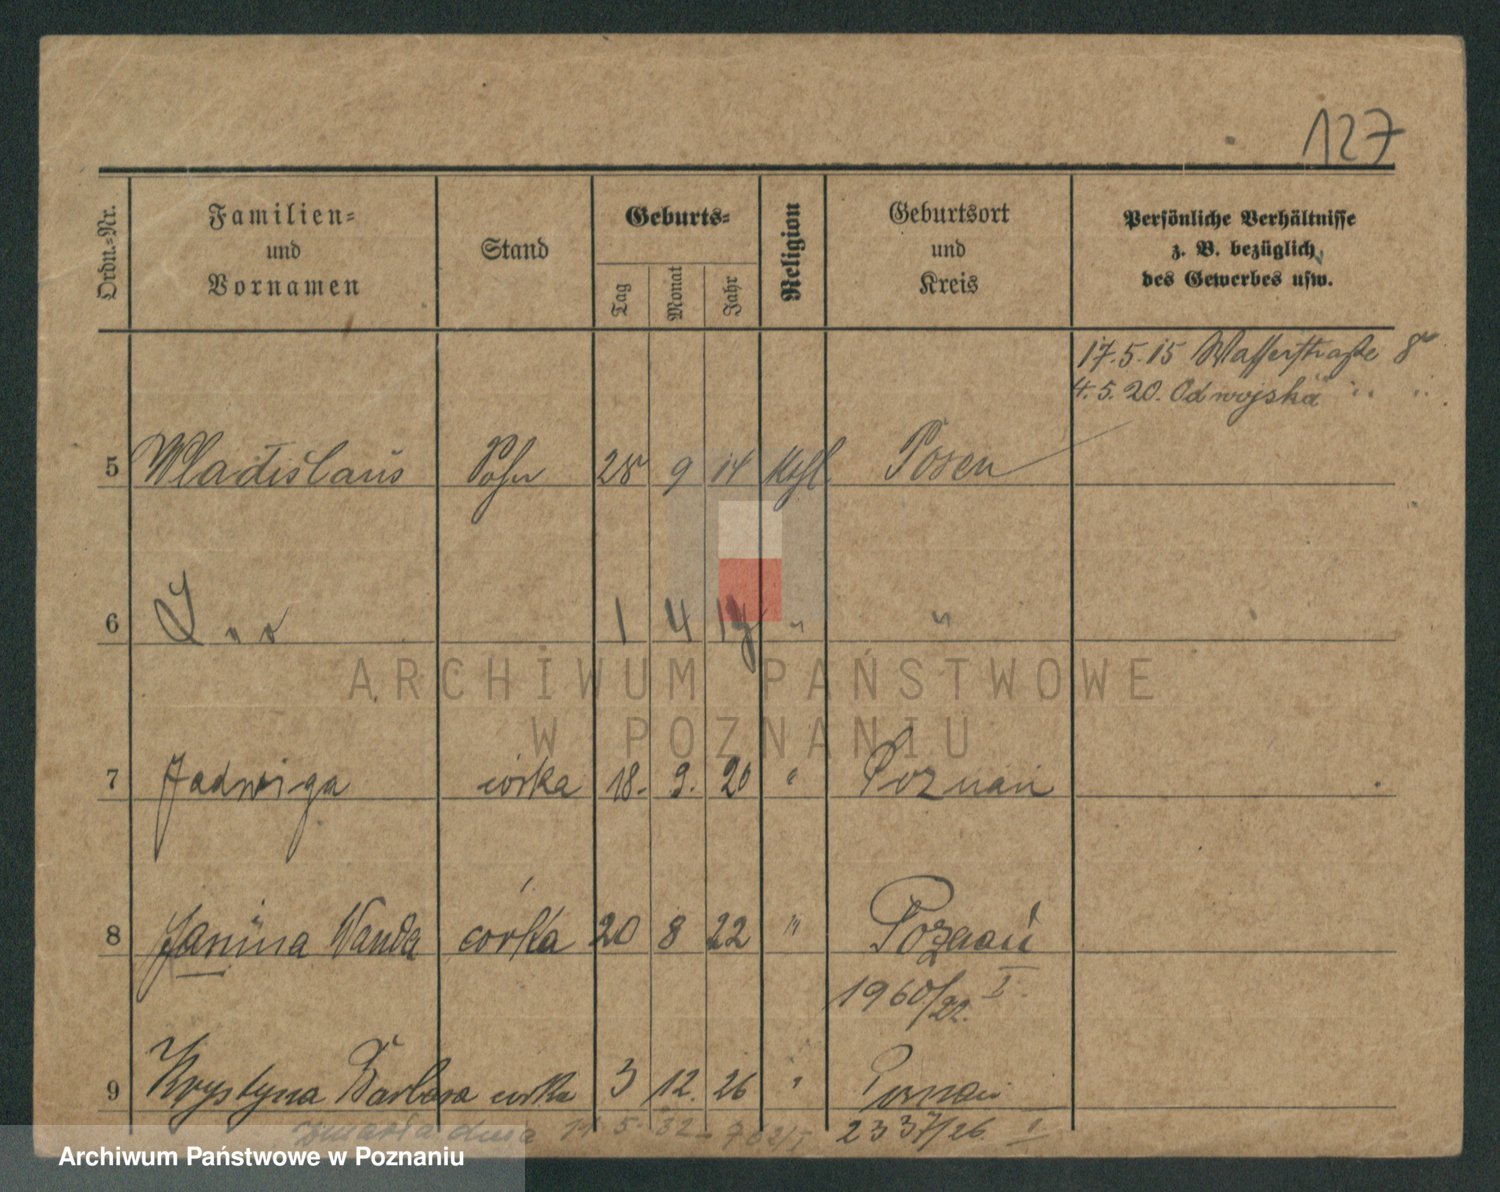 127
Ordn.-Nr. Familien- und Vornamen Stand Geburts- Tag Monat Jahr Religion Geburtsort und Kreis Persönliche Verhältnisse z. B. bezüglich des Gewerbes usw.
17.5.15 Wasserstraße 8
4.5.20. Odwojska " "
5 Wladislaus Sohn 28 9 14 kthl Posen
6 1 4 "  "
ARCHIWUM PAŃSTWOWE
W POZNANIU
7 Jadwiga córka 18. 9. 20 " Poznań
8 Janina Wanda córka 20 8 22 " Poznań
1960/22. I.
9 Krystyna Barbara córka 3 12. 26 " Poznań
zmarła dnia 11.5.32 - 782/I 2337/26 I
Archiwum Państwowe w Poznaniu